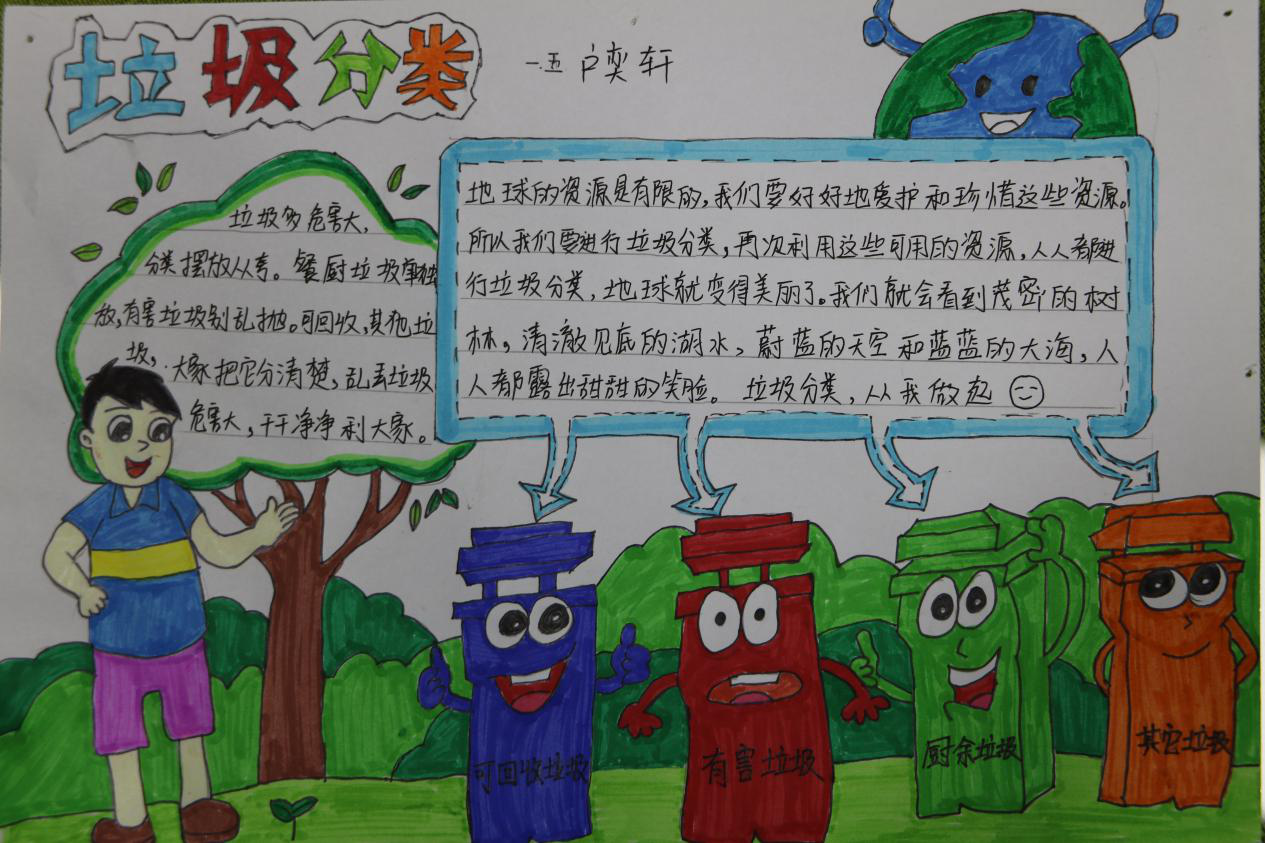 垃圾分类
一.五 户奕轩
垃圾多危害大,
分类摆放从夸。餐厨垃圾单独
放,有害垃圾别乱抛。可回收,其他垃
圾,大家把它分清楚,乱丢垃圾
危害大,干干净净利大家。
地球的资源是有限的,我们要好好地爱护和珍惜这些资源。
所以我们要进行垃圾分类,再次利用这些可用的资源,人人都进
行垃圾分类,地球就变得美丽了。我们就会看到茂密的树
林,清澈见底的湖水,蔚蓝的天空和蓝蓝的大海,人
人都露出甜甜的笑脸。垃圾分类,从我做起
可回收垃圾
有害垃圾
厨余垃圾
其它垃圾